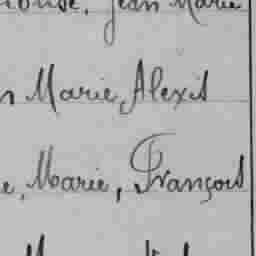 Jean Marie
n Marie, Alexis
e, Marie, François